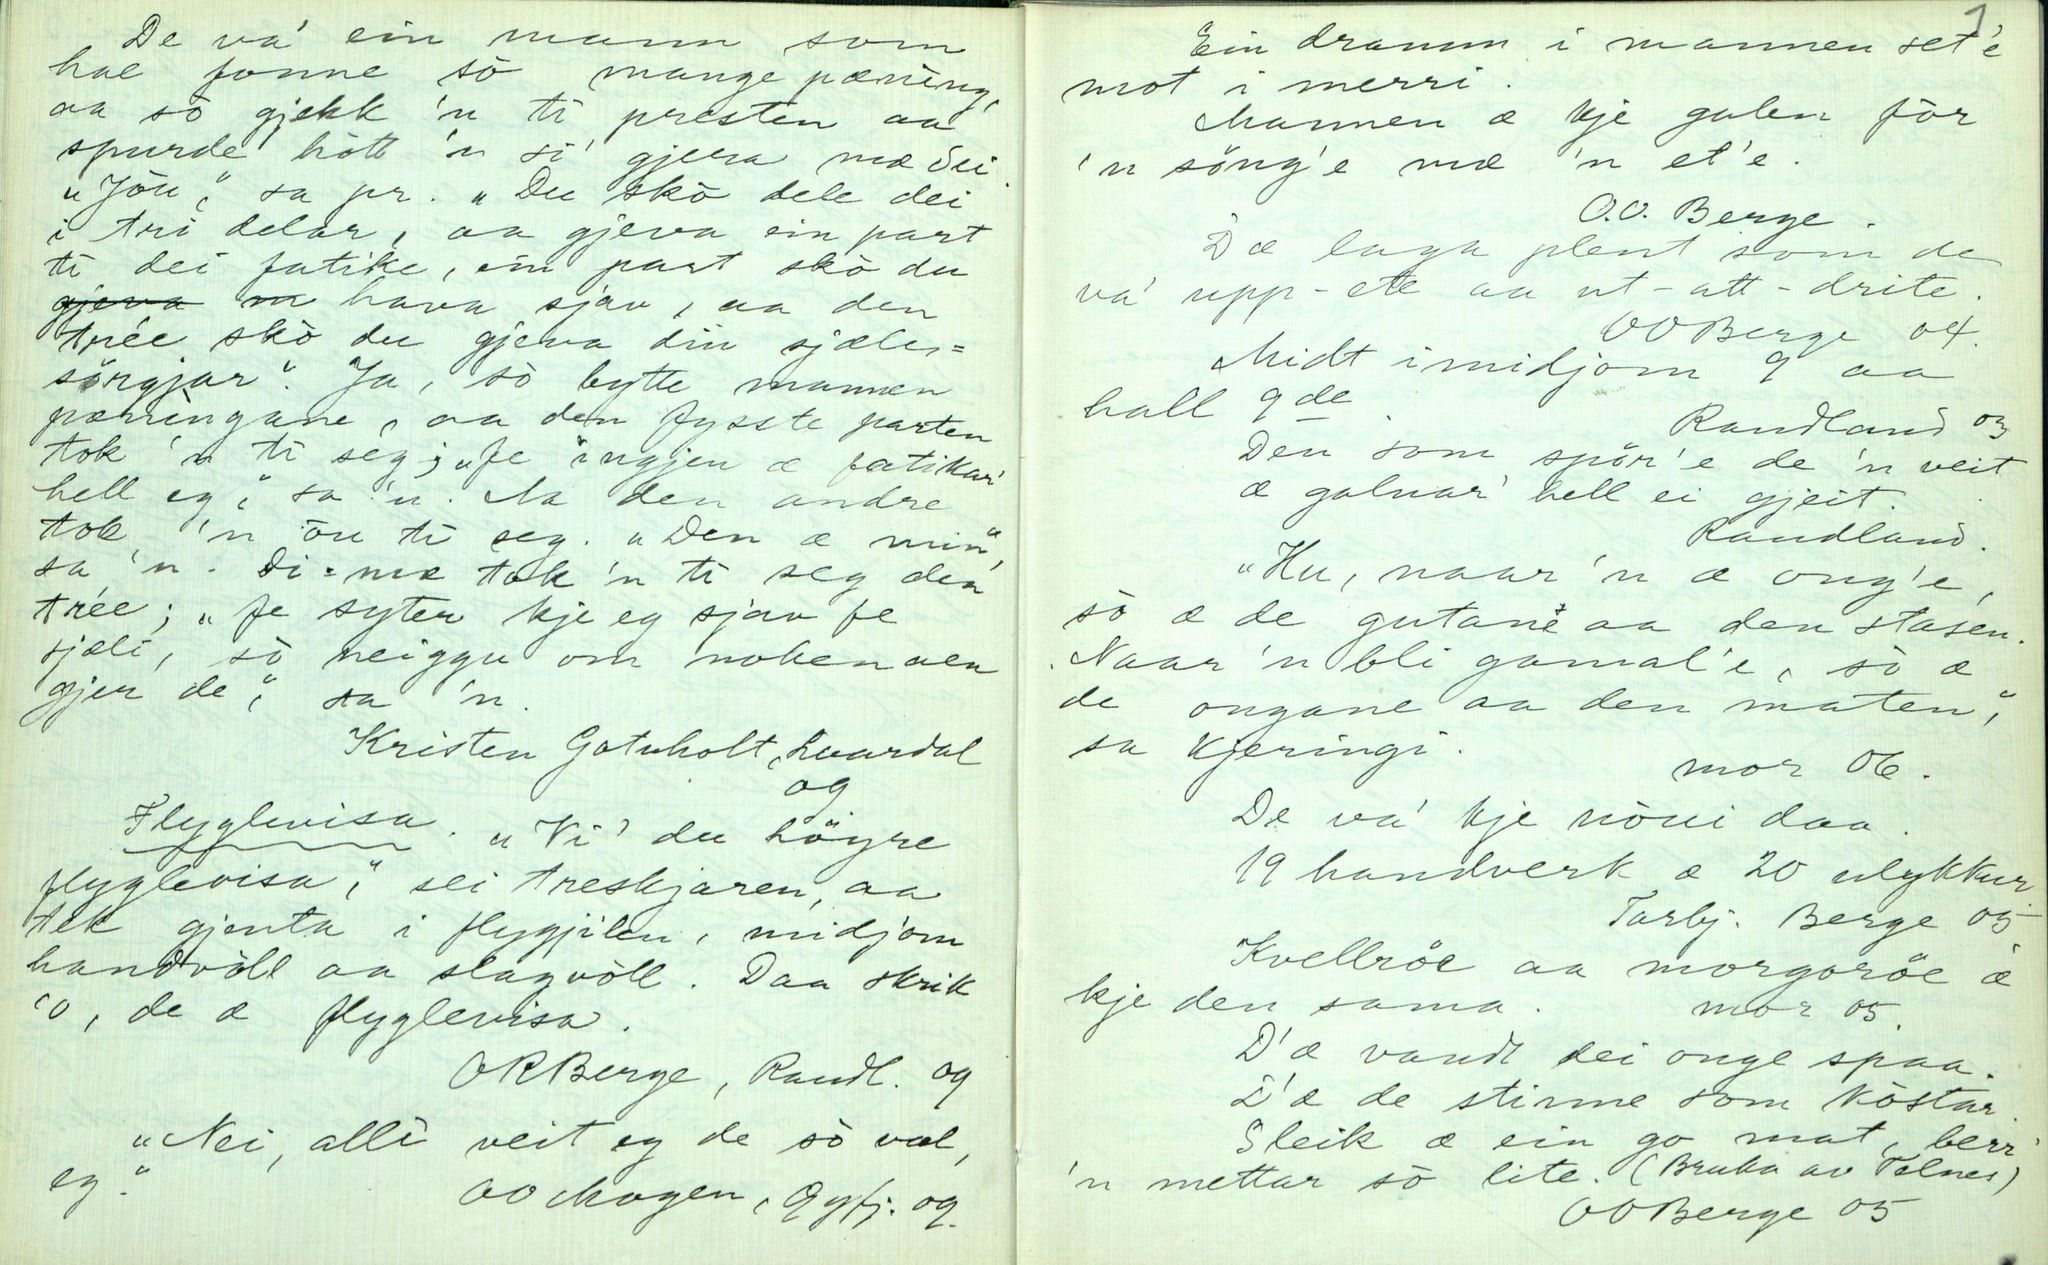 De va' ein mann som
hae fonne sò mange pæning,
aa sò gjekk 'n ti presten aa
spurde hòtt 'n si' gjera mæ dei.
"Jòu," sa pr. "Du skò dele dei
i tri delar, aa gjeva ein part
ti dei fatike, ein part skò du
gjeva m hava sjav, aa den
trée skò du gjeva din sjæles=
sörgjar". Ja, sò bytte mannen
pæningane, aa den fysste parten
tok 'n ti seg; "fe ingjen æ fatikar'
hell eg," sa 'n. Aa den andre
tok 'n òu ti seg. "Den æ min",
sa 'n. Di=mæ tok 'n ti seg den
trée; "fe syter kje eg sjav fe
sjæli, sò neiggu om noken aen
gjer de," sa 'n.
Kristen Gotuholt, Lvardal
09
Flyglevisa. "Vi' du höyre
flyglevisa," sei treskjaren, aa
tek gjenta i flygjilen, midjom
handvòll aa slagvòll. Daa skrik
'o, de æ flyglevisa.
ORBerge, Raudl. 09
"Nei, alli veit eg de sò væl,
eg."
OO Mogen, Øyfj. 09.
1
Ein dramm i mannen set'e
mot i merri.
Mannen æ kje galen fòr
'n söng'e mæ 'n et'e.
O.O. Berge.
D'æ laga plent som de
va' upp-ete aa ut-att-drite.
OOBerge 04.
Midt imidjom 9 aa
hall 9de.
Raudland 03
Den som spör'e de 'n veit
æ galnar' hell ei gjeit.
Raudland.
"Hu, naar 'n æ ong'e,
sò æ de gutane aa den stasen.
Naar 'n bli gamal'e, sò æ
de ongane aa den maten,"
sa kjeringi.
mor 06.
De va' kje nòni daa.
19 handverk æ 20 ulykkur.
Tarbj. Berge 05
Kvellröe aa morgoröe æ
kje den sama.
mor 05.
D'æ vandt dei onge spaa.
D'æ de stinne som kòstar.
Sleik æ ein go mat, berr'
'n mettar sò lite. (Bruka av Telnes)
OOBerge 05